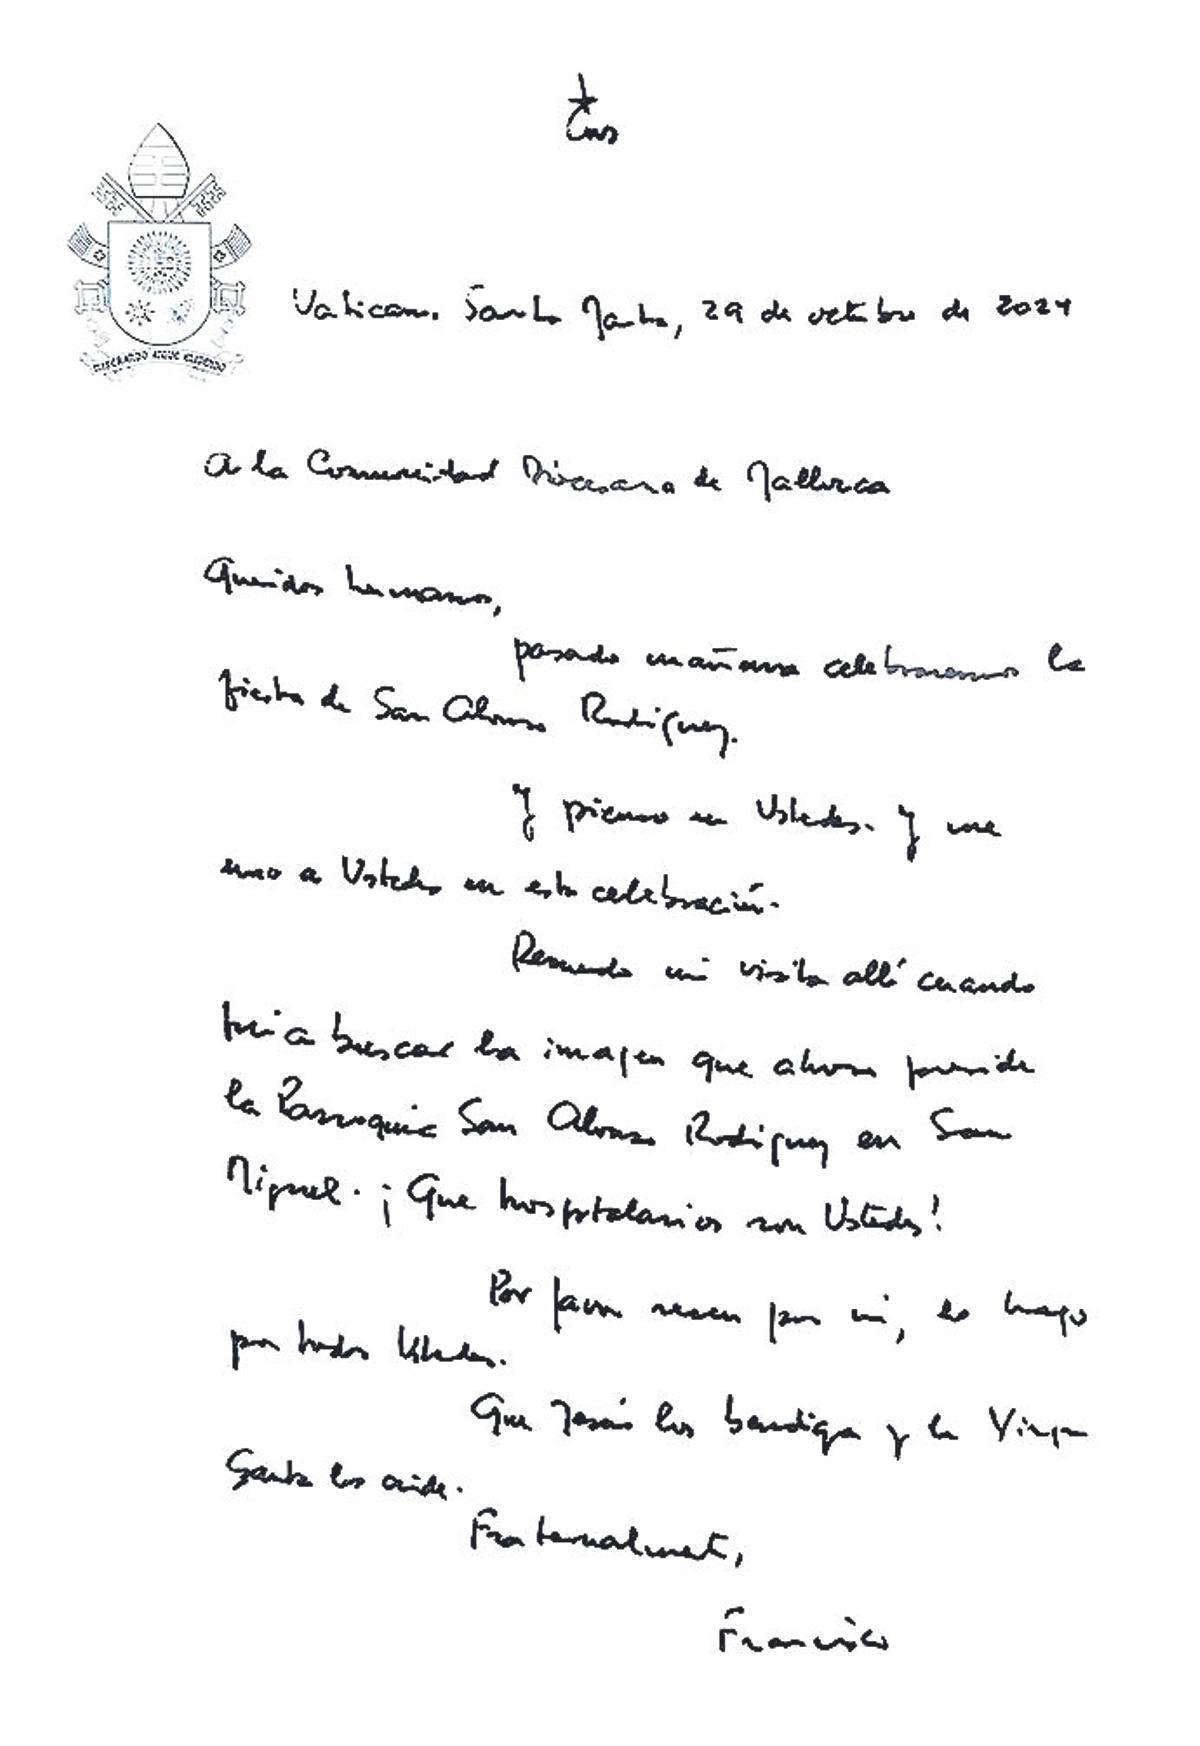 MISERANDO ATQUE ELIGENDO
Vaticano. Santa Marta, 29 de octubre de 2024
A la Comunidad Diocesana de Mallorca
Queridos hermanos,
pasado mañana celebraremos la
fiesta de San Alonso Rodríguez.
Y pienso en Ustedes. Y me
uno a Ustedes en esta celebración.
Recuerdo mi visita allí cuando
fui a buscar la imagen que ahora preside
la Parroquia San Alonso Rodriguez en San
Miguel. ¡Que hospitalarios son Ustedes!
Por favor recen por mi, lo hago
por todos Ustedes.
Que Jesús los bendiga y la Virgen
Santa los cuide.
Fraternalmente,
Francisco